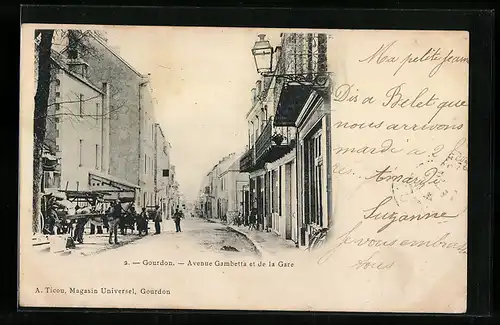 Ma petite Jeanne
Dis a Belet que
nous arrivons
mardi a 2
Suzanne
Je vous embrasse
tous
2. — Gourdon. — Avenue Gambetta et de la Gare
A. Ticou, Magasin Universel, Gourdon